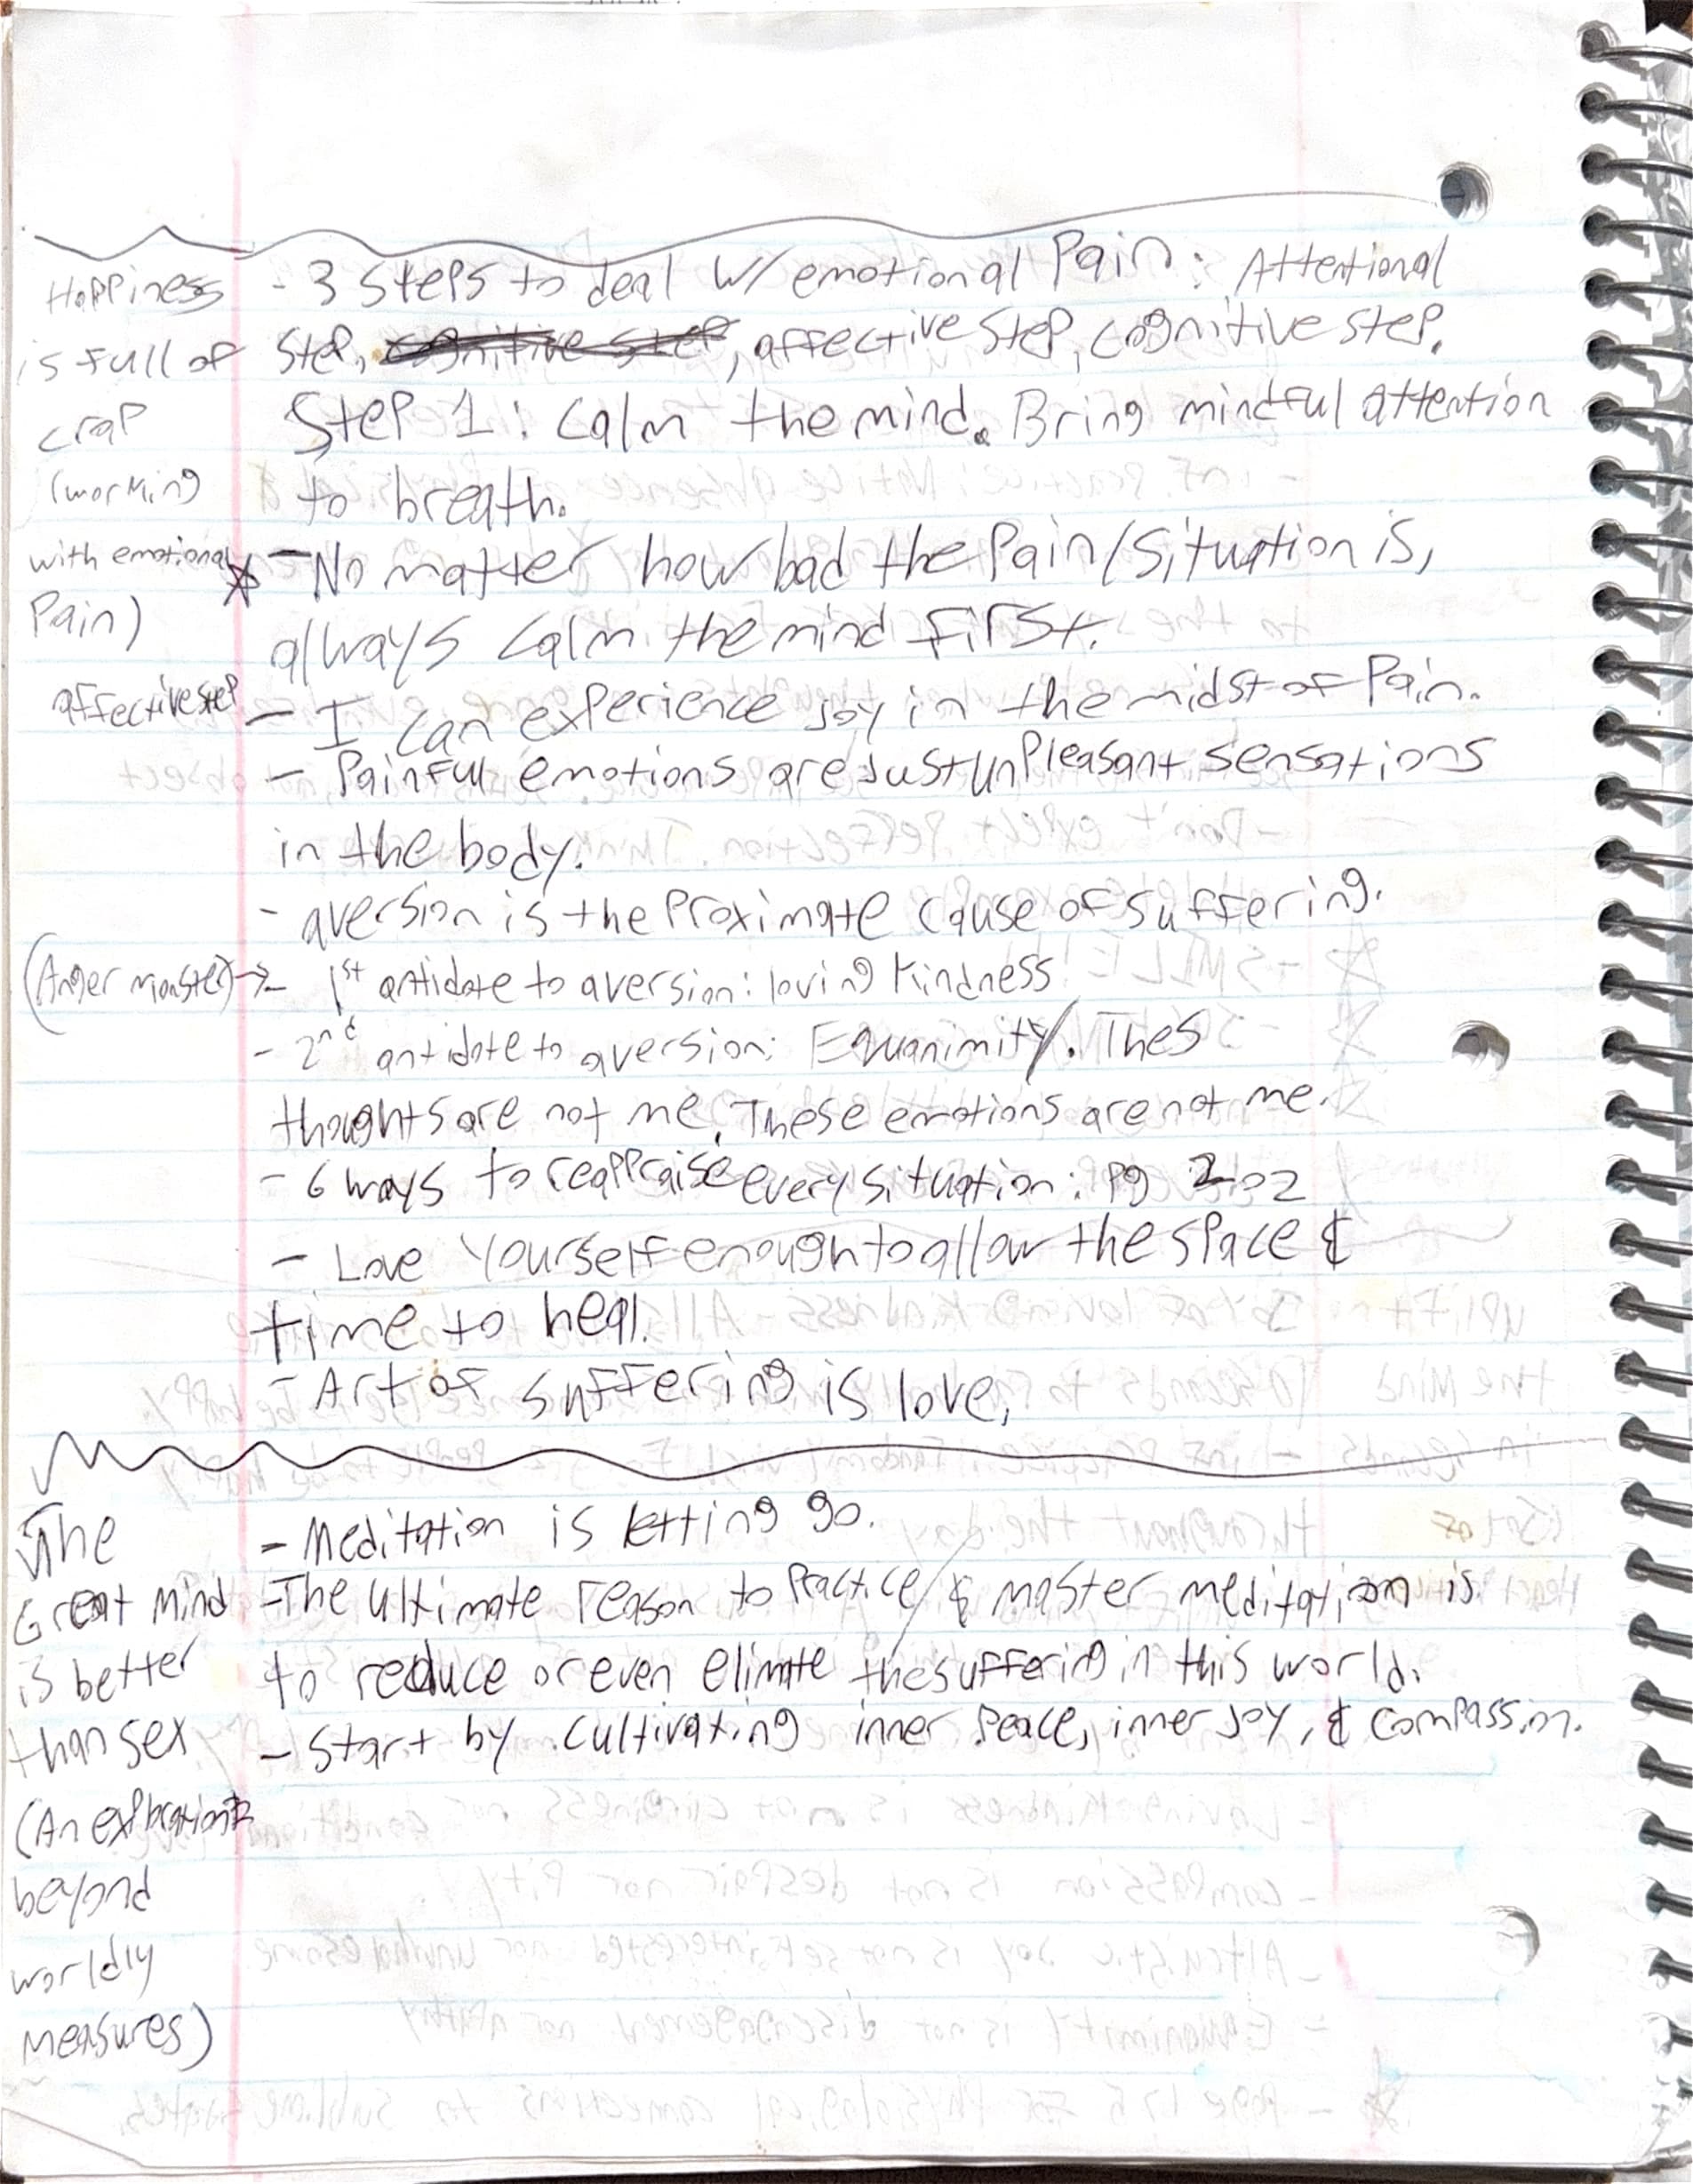 Happiness
is full of
crap
(working
with emotional
Pain)
- 3 steps to deal w/ emotional Pain: Attentional
step, cognitive step, affective step, cognitive step.
Step 1: Calm the mind. Bring mindful attention
to breath.
* - No matter how bad the Pain/situation is,
always calm the mind first.
affective step
- I can experience joy in the midst of Pain.
- Painful emotions are just unpleasant sensations
in the body.
- aversion is the Proximate cause of suffering.
(Anger monster) → - 1st antidote to aversion: loving kindness
- 2nd antidote to aversion: Equanimity. Thes
thoughts are not me. These emotions are not me.
- 6 ways to reappraise every situation: pg 202
- Love yourself enough to allow the space &
time to heal.
- Art of suffering is love.
The
Great Mind
is better
than sex
(An exploration
beyond
worldly
measures)
- Meditation is letting go.
- The ultimate reason to Practice & master meditation is
to reduce or even elimate the suffering in this world.
- Start by cultivating inner Peace, inner joy, & compassion.